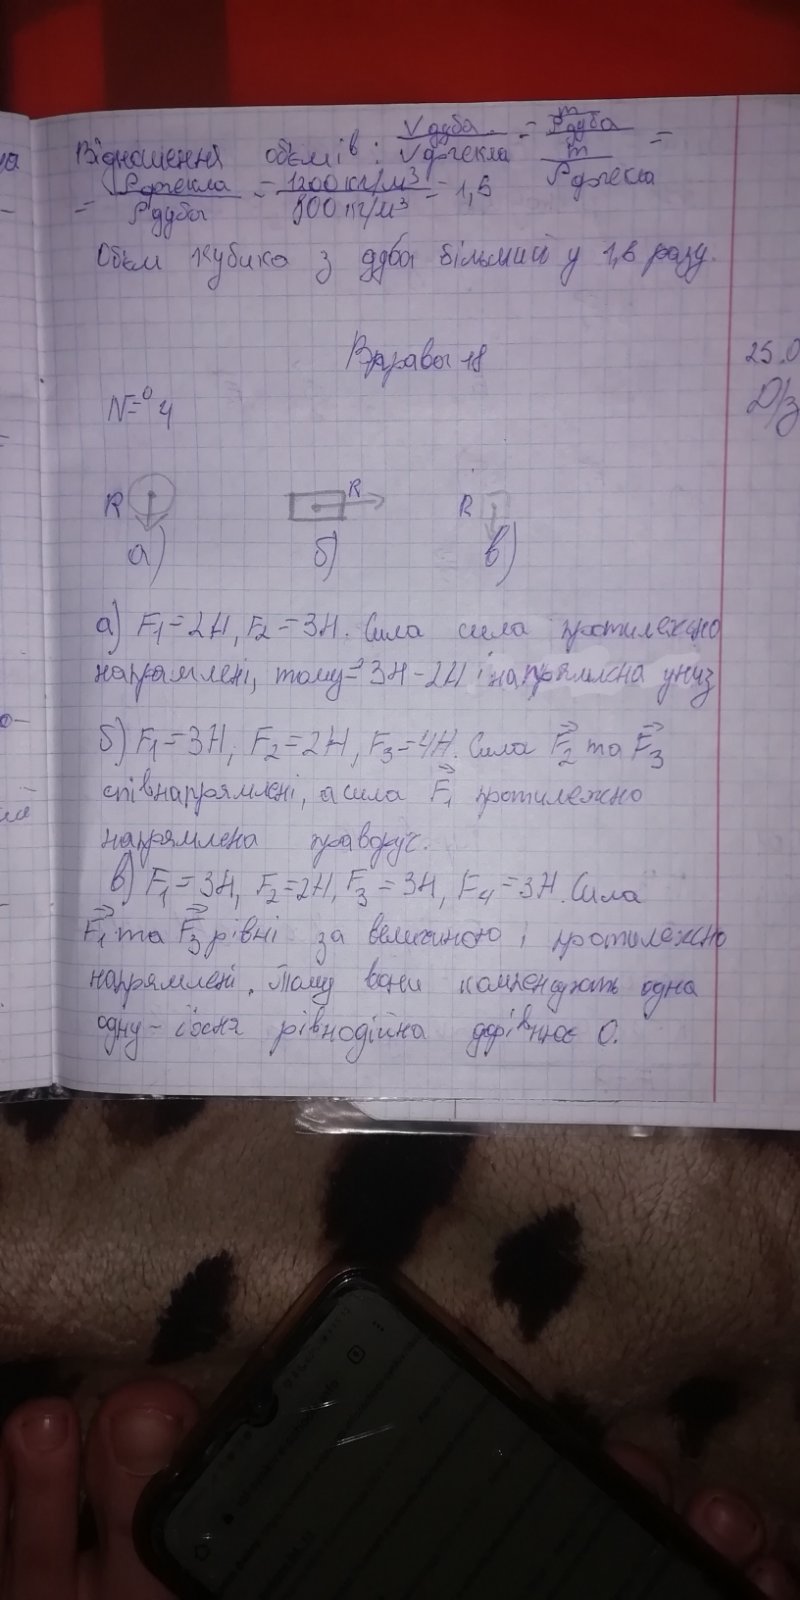 Відношення обємів: Vдуба/Vоргскла = m/ρдуба / m/ρоргскла =
= ρоргскла/ρдуба = 1200 кг/м³/800 кг/м³ = 1,5
Обєм кубика з дуба більший у 1,5 разу.
Вправа 18
25.0
Д/з
N=° 4
R
R
R
а)
б)
в)
а) F1=2Н, F2=3Н. Сила сила протилежно
напрямлені, тому=3Н-2Н і напрямлена униз
б) F1=3Н, F2=2Н, F3=4Н. Сила F2 та F3
співнапрямлені, а сила F1 протилежно
напрямлена праворуч.
в) F1=3Н, F2=2Н, F3=3Н, F4=3Н. Сила
F1 та F3 рівні за величиною і протилежно
напрямлені. Тому вони компенджать одна
одну - рівнодійна дорівнює 0.